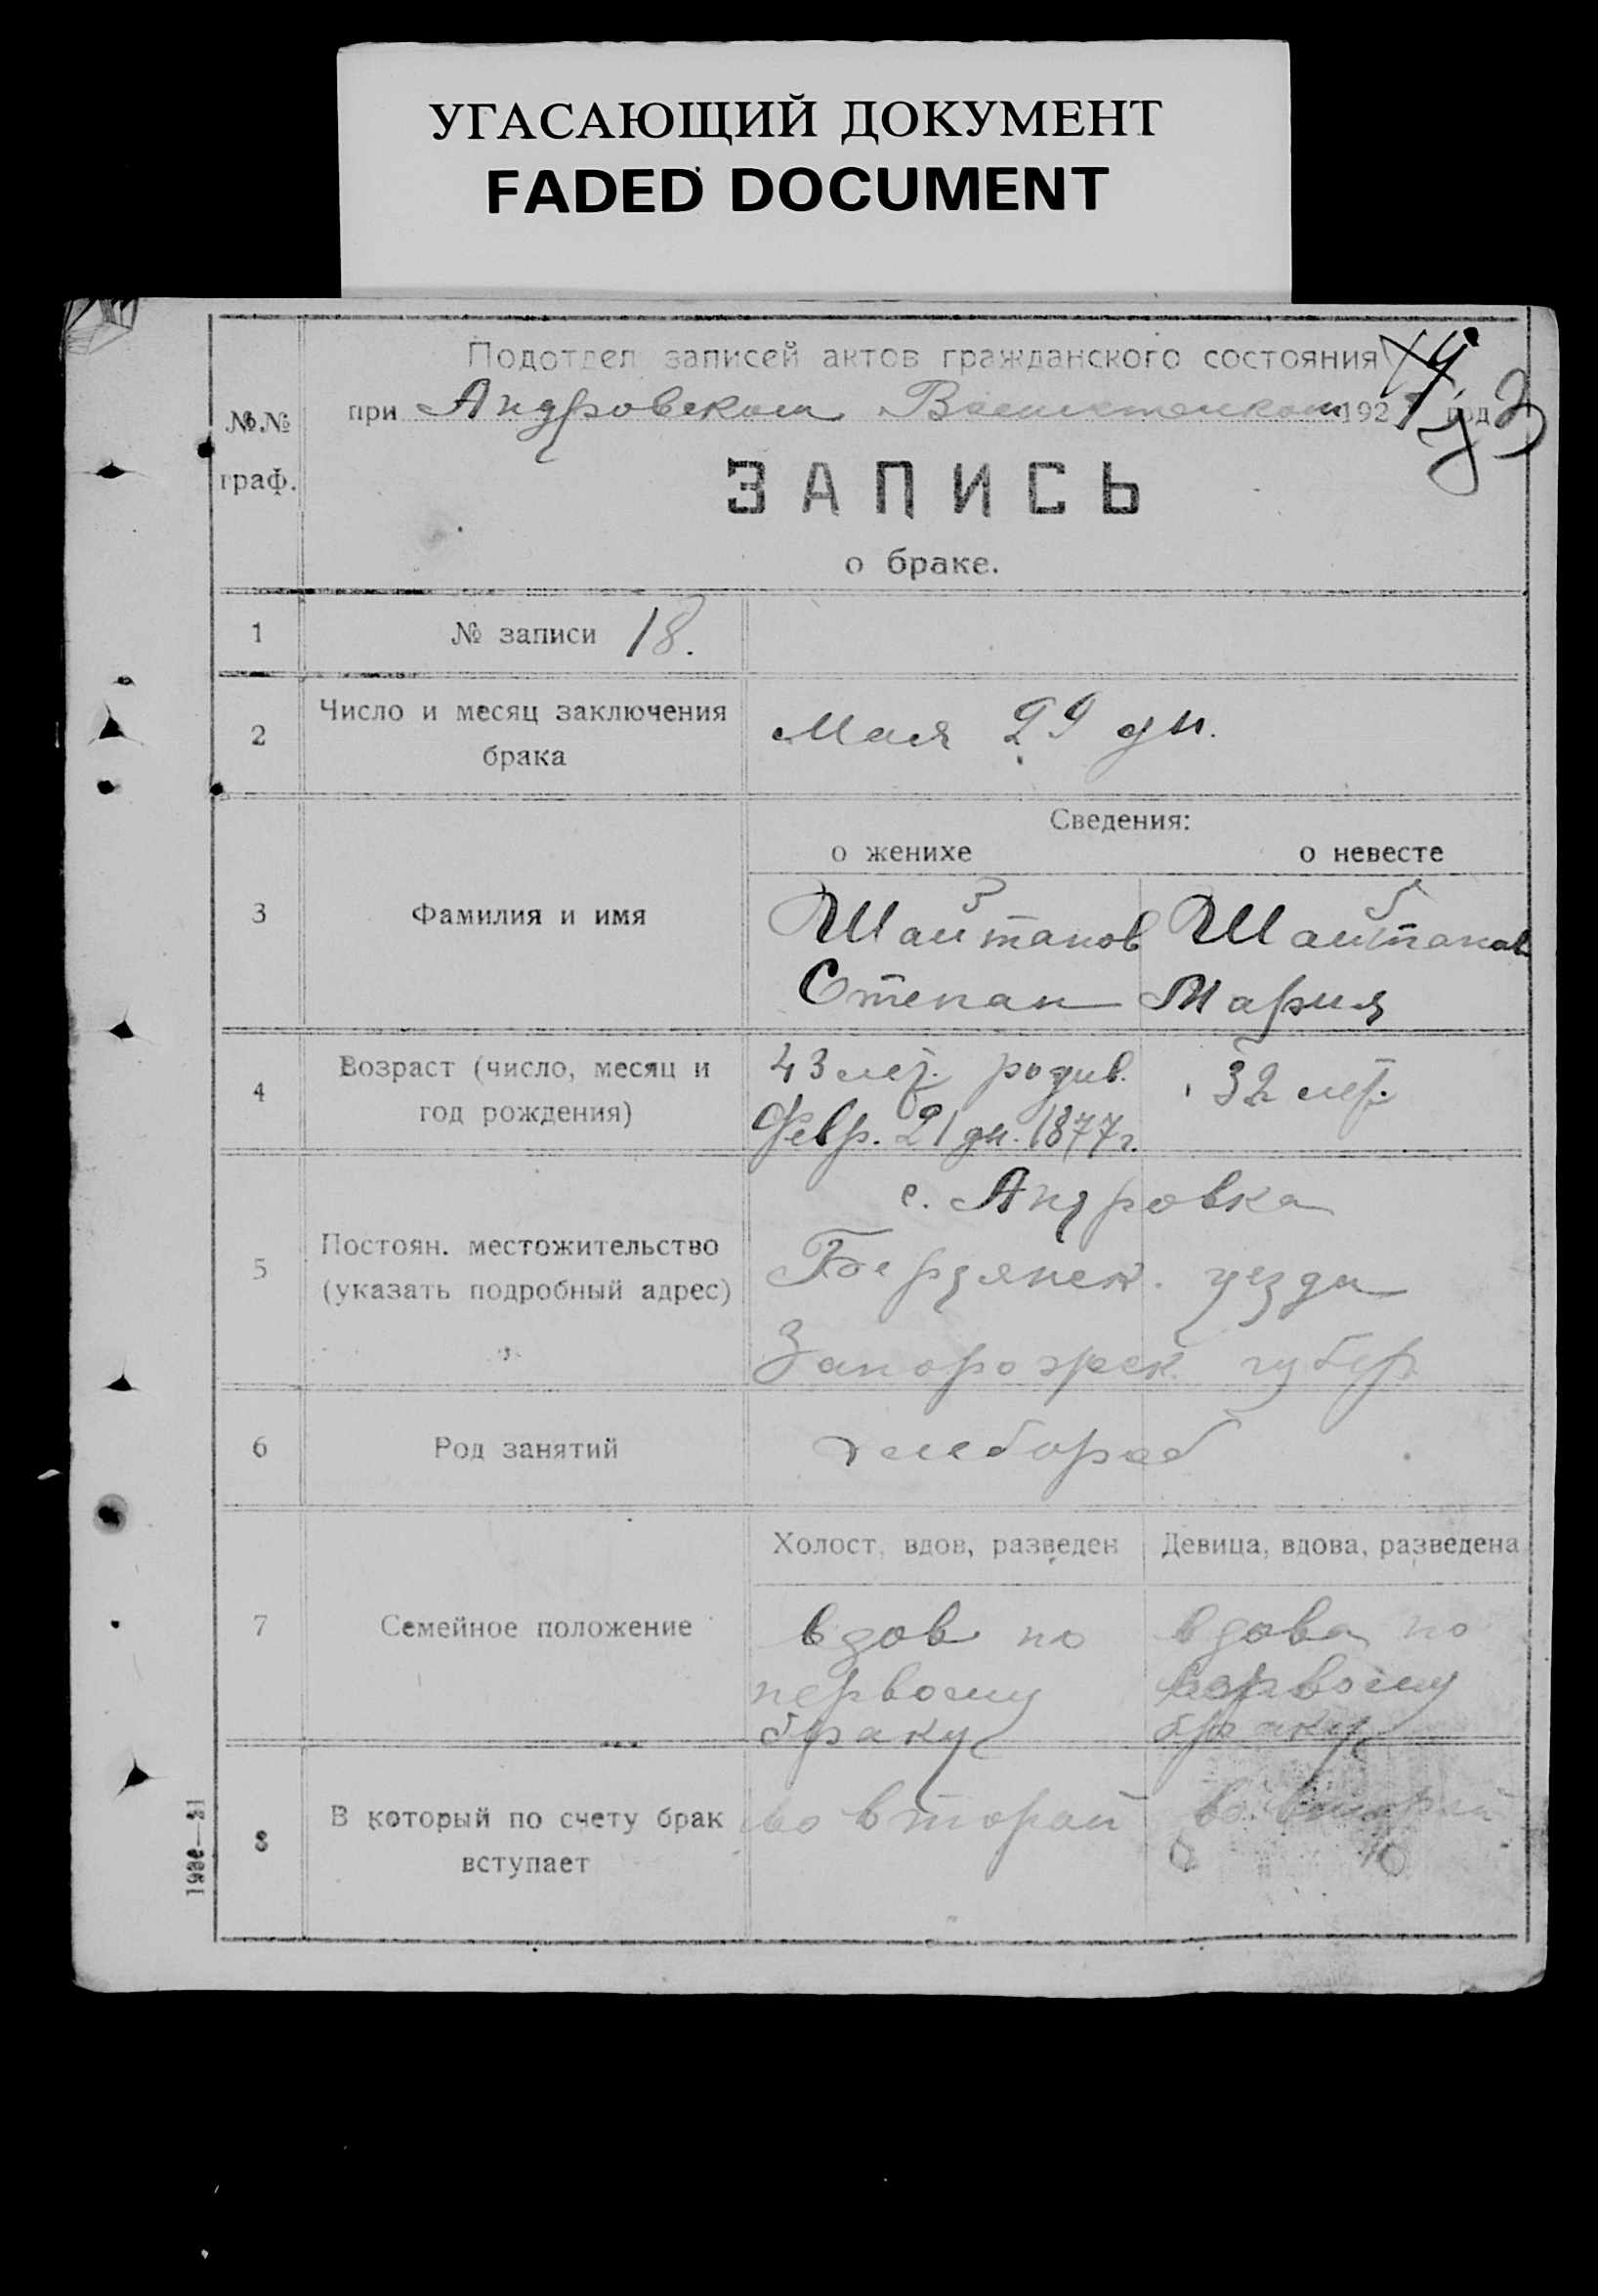 УГАСАЮЩИЙ ДОКУМЕНТ
FADED DOCUMENT
Подотдел записей актов гражданского состояния
при Андровском 192 год
№№
граф.
ЗАПИСЬ
о браке.
1 № записи 18.
2 Число и месяц заключения
брака
Мая 29 дн.
Сведения:
о женихе о невесте
3 Фамилия и имя
Шайтанов Шайтанов
Степан Мария
4 Возраст (число, месяц и
год рождения)
43 лет. родив. 32 лет.
Февр. 21 дн. 1877 г.
5 Постоян. местожительство
(указать подробный адрес)
с. Андровка
Бердянск. уезда
Запорожск. губер.
6 Род занятий
хлебороб
7 Семейное положение
Холост, вдов, разведен Девица, вдова, разведена
вдов по вдова по
первому первому
браку браку
8 В который по счету брак
вступает
во второй во второй